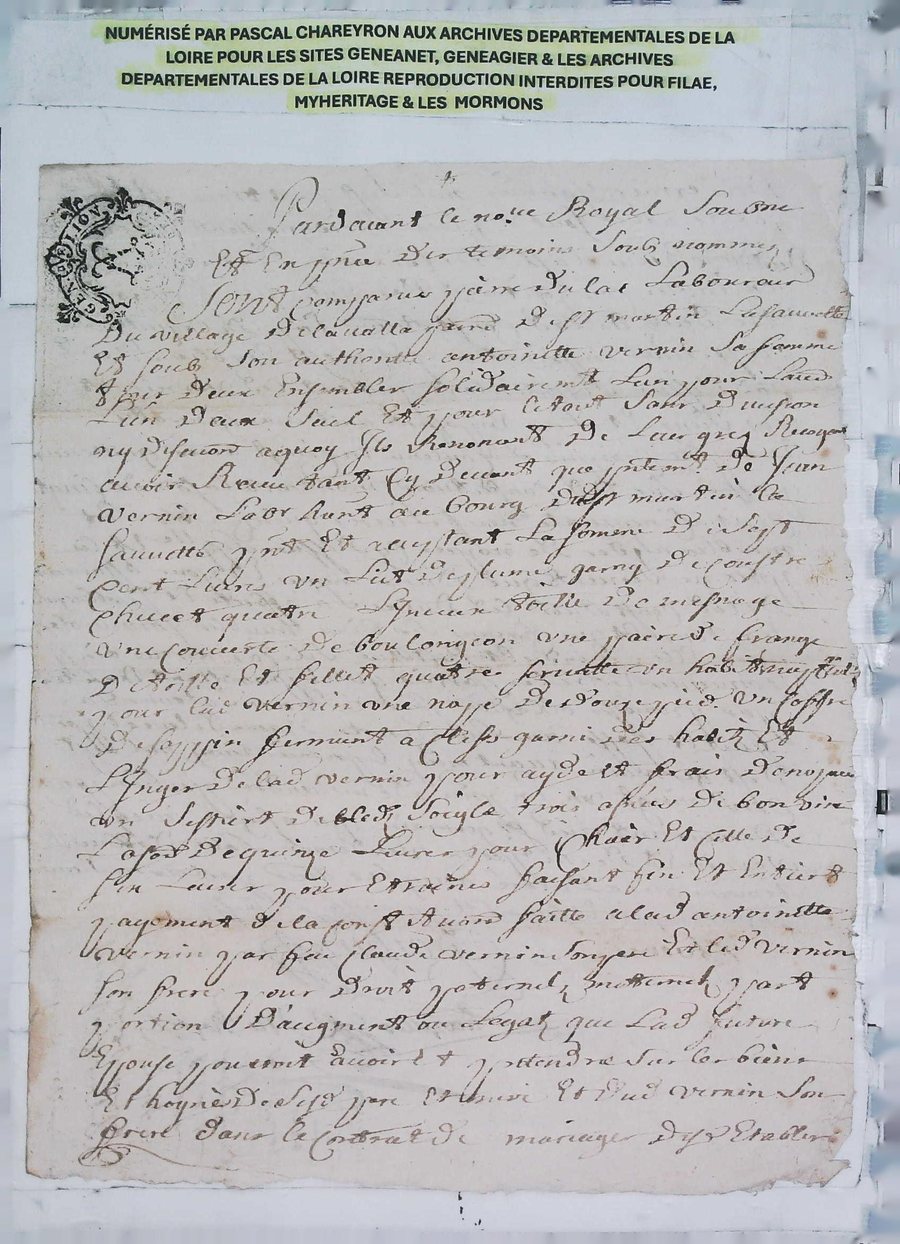 NUMÉRISÉ PAR PASCAL CHAREYRON AUX ARCHIVES DEPARTEMENTALES DE LA
LOIRE POUR LES SITES GENEANET, GENEAGIER & LES ARCHIVES
DEPARTEMENTALES DE LA LOIRE REPRODUCTION INTERDITES POUR FILAE,
MYHERITAGE & LES MORMONS
Pardavant le nore Royal Soubné
Et En pnce Des temoins Soub nommez
Sont comparus pierre Dulac Laboureur
Du village Delavalla St martin Lasauvetté
Et soub Son authorité antoinette vernin Sa femme
Deux Ensembles solidairemt Lun pour Lautre
Lun Deux Seul Et pour letout Sans Division
ny Discution aquoy Ils Renoncent De Leur grez
avoir Receu tant Cy Devant que De Jean
vernin Labr au bourg St martin la
sauvetté pnt Et acceptant La somme De Sept
cent Livres un Lict Deplume garny De
quatre toille De mesnage
une couverte De boulongeon une paire De frange
Et fillet quatre serviette un habit
pour lad vernin une nape De un coffre
De sappin fermant a Clefs garni Des habitz Et
Linges De lad vernin pour ayde Et frais Denopces
un De bled Soigle trois De bon vin
De quinze Livres pour Et Celle De
Livres pour Etraines faisant fin Et Entiert
payement De la faitte alad antoinette
vernin par feu Claude vernin Et led vernin
son frere pour Droit paternelz matternelz part
portion D'augment ou Legatz que Lad future
Epouse pouvoit avoir Et pretendre Sur les biens
Et De Sesd pere Et mere Et Dud vernin Son
frere Dans le Contrat De mariage